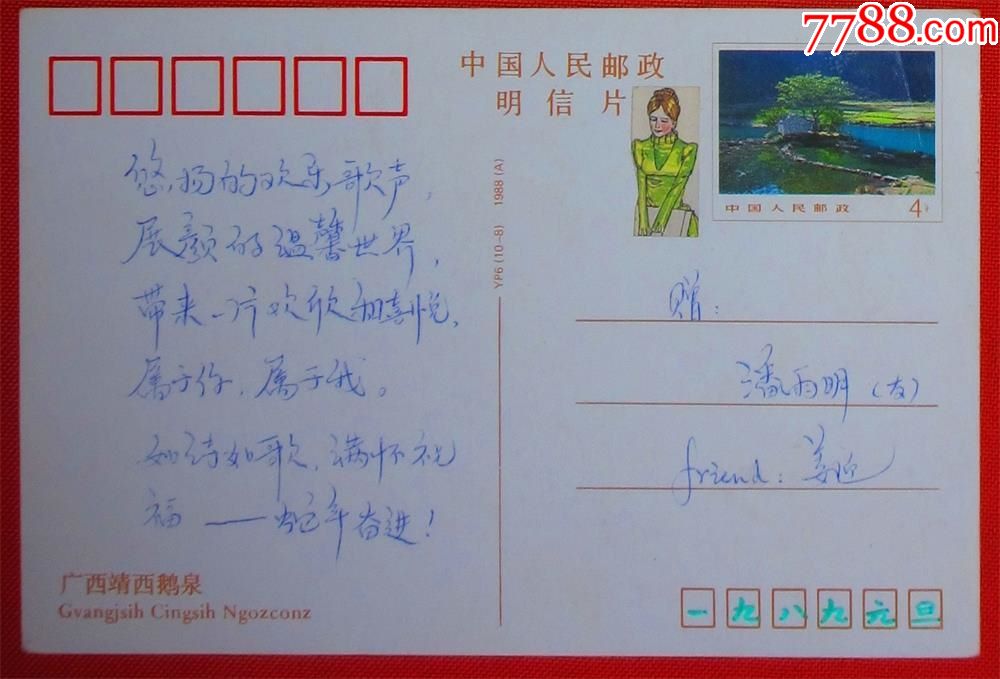 7788.com
中国人民邮政
明信片
中国人民邮政
4分
YP6 (10-8) 1988 (A)
悠扬的欢乐歌声,
展颜的温馨世界,
带来一片欢欣和喜悦,
属于你,属于我。
如诗如歌,满怀祝
福——蛇年奋进!
赠:
潘雨明(友)
friend: 姜迎
广西靖西鹅泉
Gvangjsih Cingsih Ngozconz
一九八九元旦